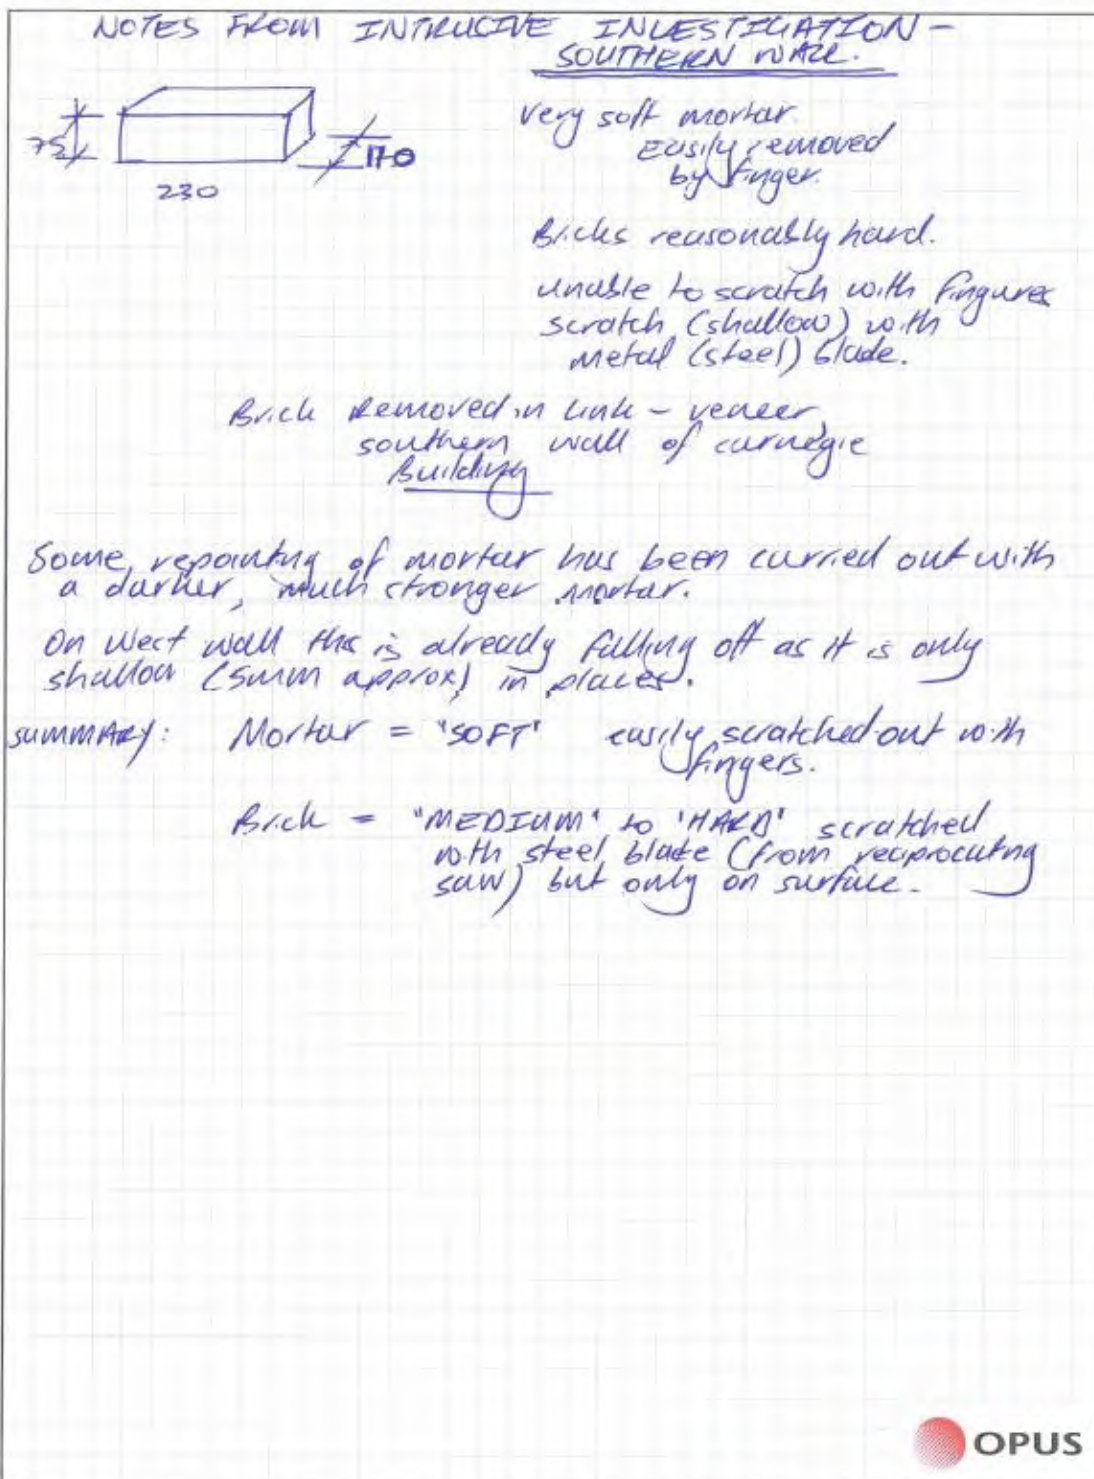 NOTES FROM INTRUSIVE INVESTIGATION -
SOUTHERN WALL.
75
110
230
Very soft mortar.
Easily removed
by finger.
Bricks reasonably hard.
unable to scratch with fingures
scratch (shallow) with
metal (steel) blade.
Brick Removed in link - veneer,
southern wall of carnegie
Building
Some repointing of mortar has been carried out with
a darker, much stronger mortar.
On West wall this is already falling off as it is only
shallow (5mm approx) in places.
SUMMARY: Mortar = "SOFT" easily scratched out with
fingers.
Brick = "MEDIUM" to "HARD" scratched
with steel blade (from reciprocating
saw) but only on surface.
OPUS